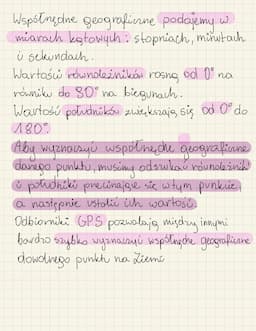 Współrzędne geograficzne podajemy w
miarach kątowych: stopniach, minutach
i sekundach.
Wartości równoleżników rosną od 0° na
równiku do 90° na biegunach.
Wartość południków zwiększają się od 0° do
180°.
Aby wyznaczyć współrzędne geograficzne
danego punktu, musimy odszukać równoleżnik
i południki przecinające się w tym punkcie,
a następnie ustalić ich wartość.
Odbiorniki GPS pozwalają między innymi
bardzo szybko wyznaczyć współrzędne geograficzne
dowolnego punktu na Ziemi